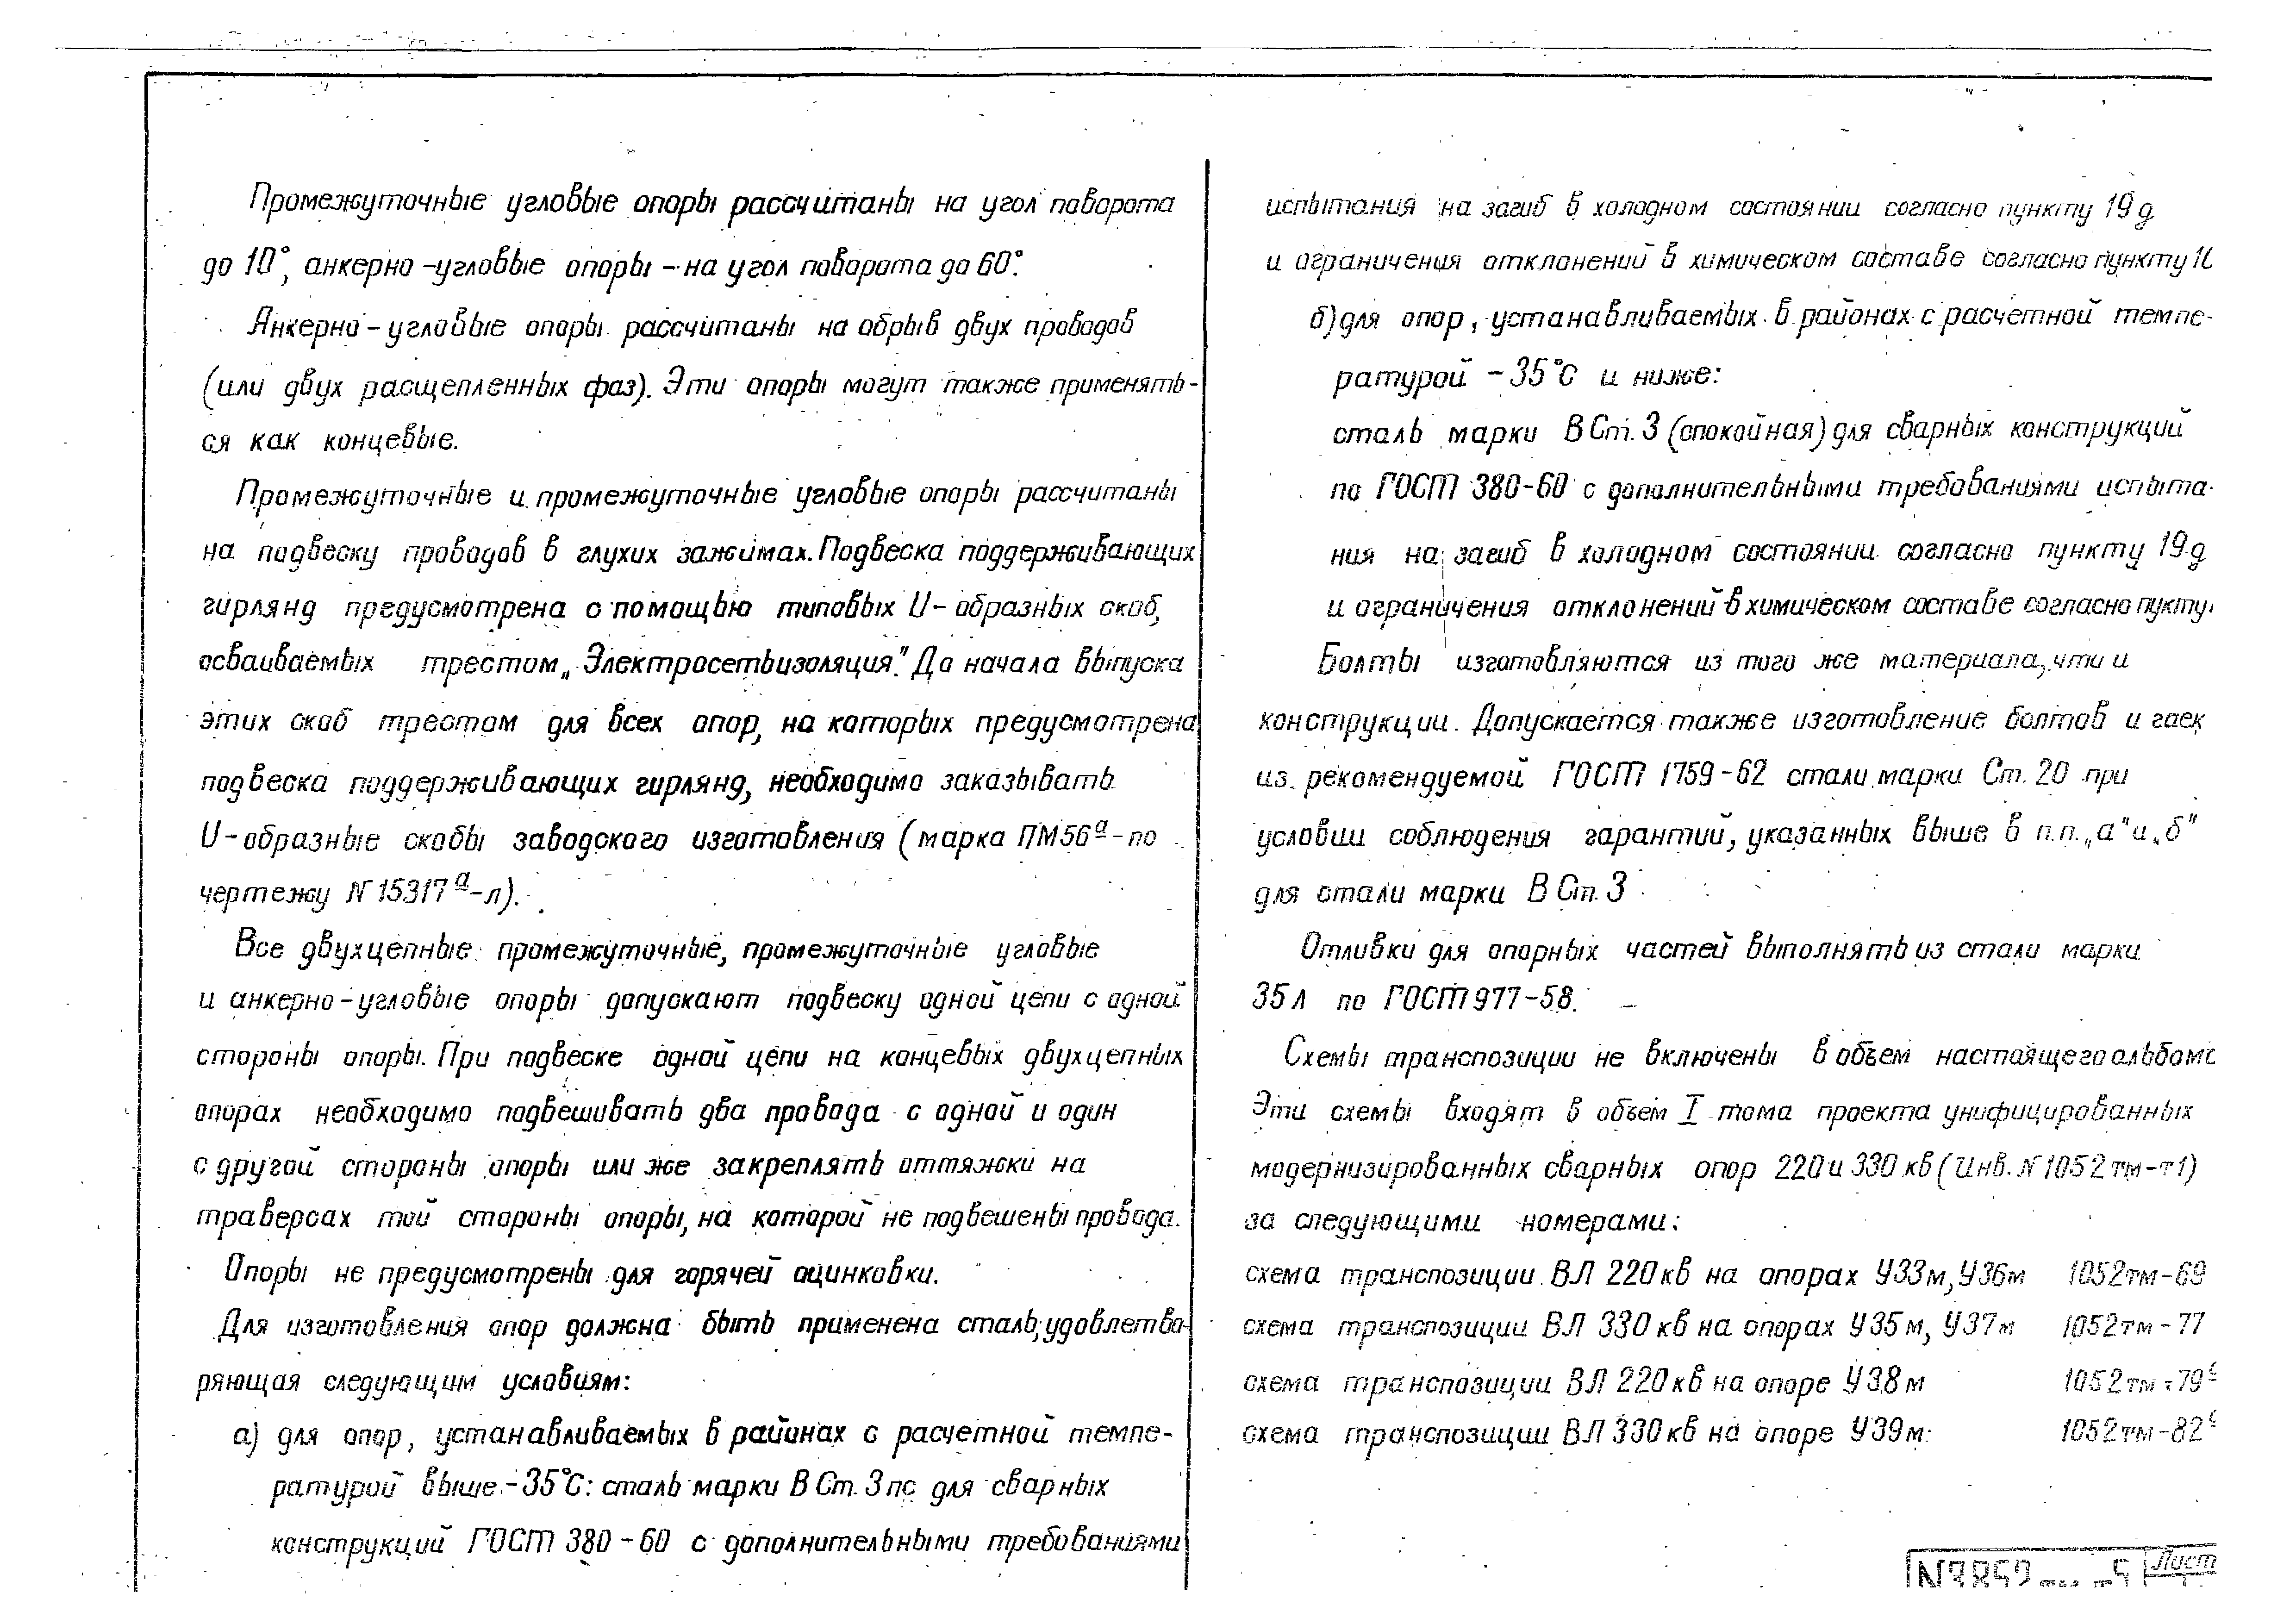 Промежуточные угловые опоры рассчитаны на угол поворота
до 10°, анкерно-угловые опоры - на угол поворота до 60°.
Анкерно-угловые опоры рассчитаны на обрыв двух проводов
(или двух расщепленных фаз). Эти опоры могут также применять-
ся как концевые.
Промежуточные и промежуточные угловые опоры рассчитаны
на подвеску проводов в глухих зажимах. Подвеска поддерживающих
гирлянд предусмотрена с помощью типовых U-образных скоб,
осваиваемых трестом „Электросетьизоляция." До начала выпуска
этих скоб трестом для всех опор, на которых предусмотрена
подвеска поддерживающих гирлянд, необходимо заказывать
U-образные скобы заводского изготовления (марка ПМ56а-по
чертежу N 15317а-л).
Все двухцепные промежуточные, промежуточные угловые
и анкерно-угловые опоры допускают подвеску одной цепи с одной
стороны опоры. При подвеске одной цепи на концевых двухцепных
опорах необходимо подвешивать два провода с одной и один
с другой стороны опоры или же закреплять оттяжки на
траверсах той стороны опоры, на которой не подвешены провода.
Опоры не предусмотрены для горячей оцинковки.
Для изготовления опор должна быть применена сталь, удовлетво-
ряющая следующим условиям:
а) для опор, устанавливаемых в районах с расчетной темпе-
ратурой выше -35°С: сталь марки В Ст. 3 пс для сварных
конструкций ГОСТ 380-60 с дополнительными требованиями
испытания на загиб в холодном состоянии согласно пункту 19 д
и ограничения отклонений в химическом составе согласно пункту
б) для опор, устанавливаемых в районах с расчетной темпе-
ратурой -35°С и ниже:
сталь марки В Ст. 3 (спокойная) для сварных конструкций
по ГОСТ 380-60 с дополнительными требованиями испыта-
ния на загиб в холодном состоянии согласно пункту 19 д
и ограничения отклонений в химическом составе согласно пукту
Болты изготовляются из того же материала, что и
конструкции. Допускается также изготовление болтов и гаек
из рекомендуемой ГОСТ 1759-62 стали марки Ст. 20 при
условии соблюдения гарантий, указанных выше в п.п. „а" и „б"
для стали марки В Ст. 3
Отливки для опорных частей выполнять из стали марки
35Л по ГОСТ 977-58.
Схемы транспозиции не включены в объем настоящего альбома
Эти схемы входят в объем I тома проекта унифицированных
модернизированных сварных опор 220 и 330 кв (Инв. N 1052тм-т1)
за следующими номерами:
схема транспозиции ВЛ 220 кв на опорах У33м, У36м 1052тм-69
схема транспозиции ВЛ 330 кв на опорах У35м, У37м 1052тм-77
схема транспозиции ВЛ 220 кв на опоре У38м 1052тм-79
схема транспозиции ВЛ 330 кв на опоре У39м 1052тм-82
Лист